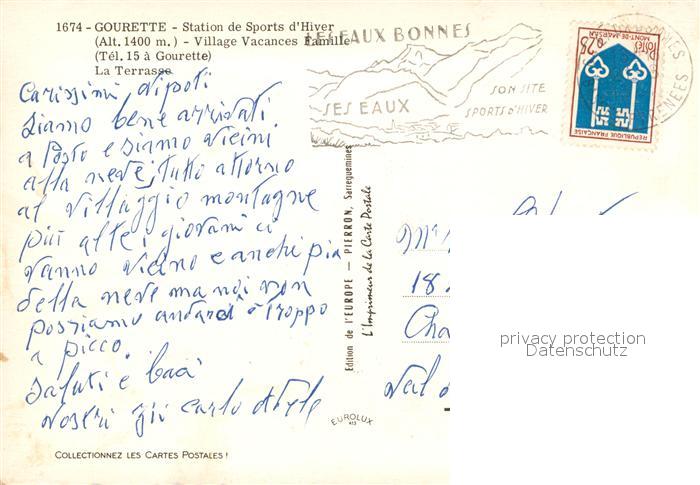 1674 - GOURETTE - Station de Sports d'Hiver
(Alt. 1400 m.) - Village Vacances Famille
(Tél. 15 à Gourette)
La Terrasse
LES EAUX BONNES
SES EAUX
SON SITE
SPORTS D'HIVER
0,25
Postes
MONT-DE-MARSAN
REPUBLIQUE FRANÇAISE
Carissimi nipoti
siamo bene arrivati
a Posto e siamo vicini
alla neve, tutto attorno
al villaggio montagne
più alte i giovani ci
vanno vicino e anche pia
della neve ma noi non
possiamo andarci è troppo
a picco.
saluti e baci
vostri zii carlo
Edition de l'EUROPE — PIERRON, Sarreguemines
L'Imprimeur de la Carte Postale
18
Cha
Val
privacy protection
Datenschutz
EUROLUX
COLLECTIONNEZ LES CARTES POSTALES !